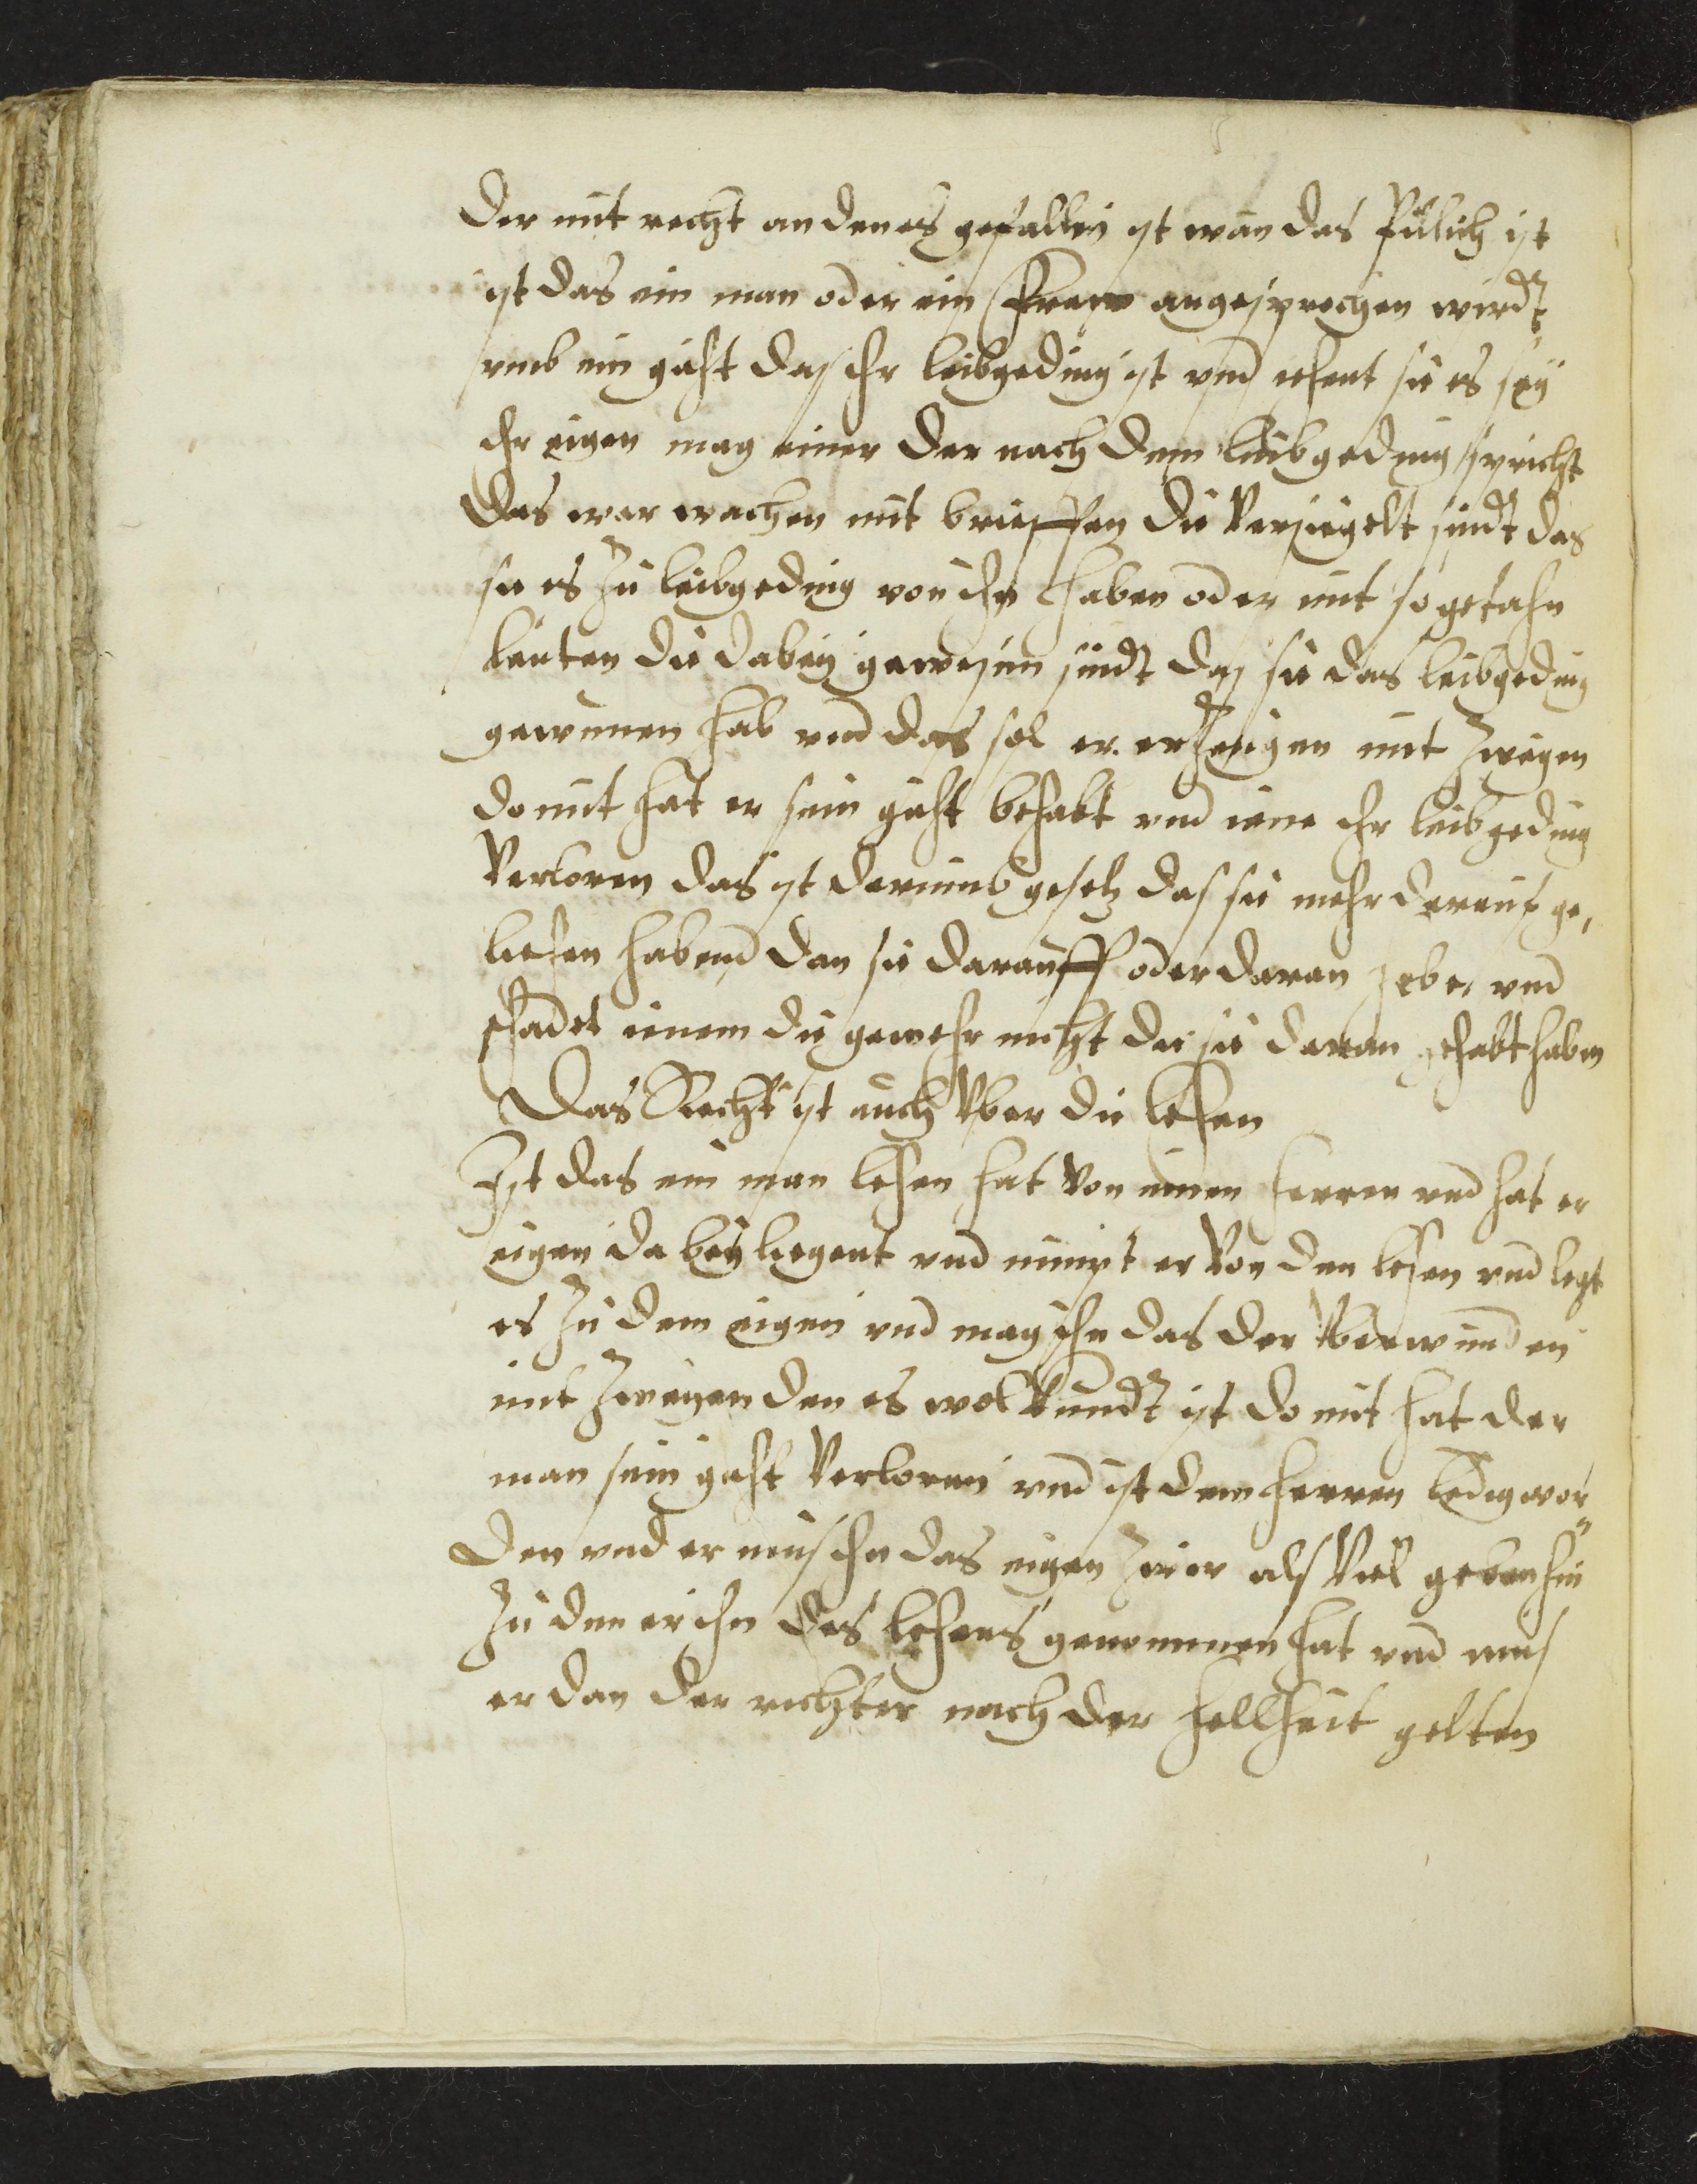 der mit recht an den es gefallen ist wan das pillich ist
ist das ein man oder ein Fraw angesprochen wirdt
vmb ein guht das ihr leibgeding ist vnd iehent sie es sey
ihr eigen mag einer der nach dem leibgeding spricht
das war machen mit brieffen die Versiegelt sindt das
sie es zu leibgeding von ihn haben oder mit so getahn
leuten die dabey gewesen sindt das sie das leibgeding
gewunnen hab vnd das sol er erzeugen mit zweyen
do mit hat er sein guht behabt vnd iene ihr leibgeding
Verloren das ist darumb gesetz das sie mehr darauf ge,
iehen habend dan sie darauff oder daran habe, vnd
schadet ienem die gewehr nicht die sie daran gehabt haben
Das Recht ist auch Vber die lehen
Ist das ein man lehen hat Von einem herren vnd hat er
eigen da bey liegent vnd nimpt er Von den lehen vnd legt
es zu dem eigen vnd mag ihn das der Vberwinden
mit zweyen den es wol kundt ist do mit hat der
man sein guht Verloren vnd ist dem herren ledig wor„
den vnd er mus ihn das eigen zwir als Viel geben hin
zu den er ihn des lehens genommen hat vnd mus
er dan der richter nach der hellheit gelten